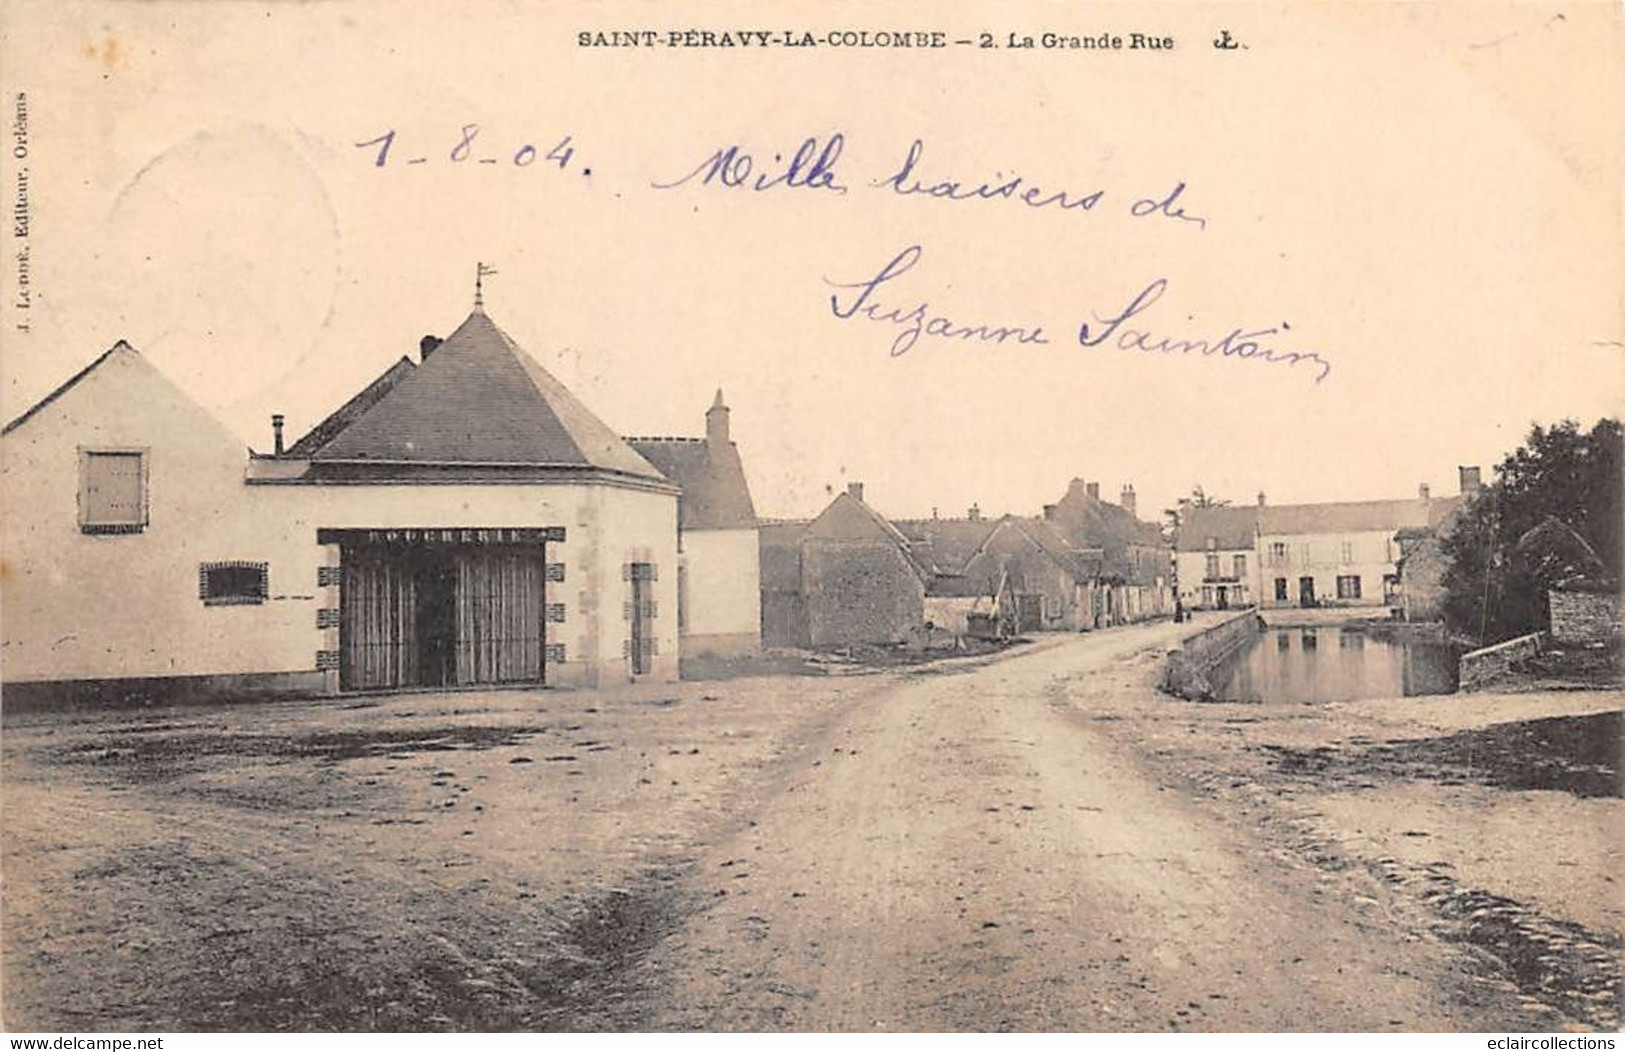 SAINT-PÉRAVY-LA-COLOMBE – 2. La Grande Rue JL.
J. LODDÉ, Editeur, Orléans
1-8-04. Mille baisers de
Suzanne Saintoin
BOUCHERIE
www.delcampe.net
eclaircollections